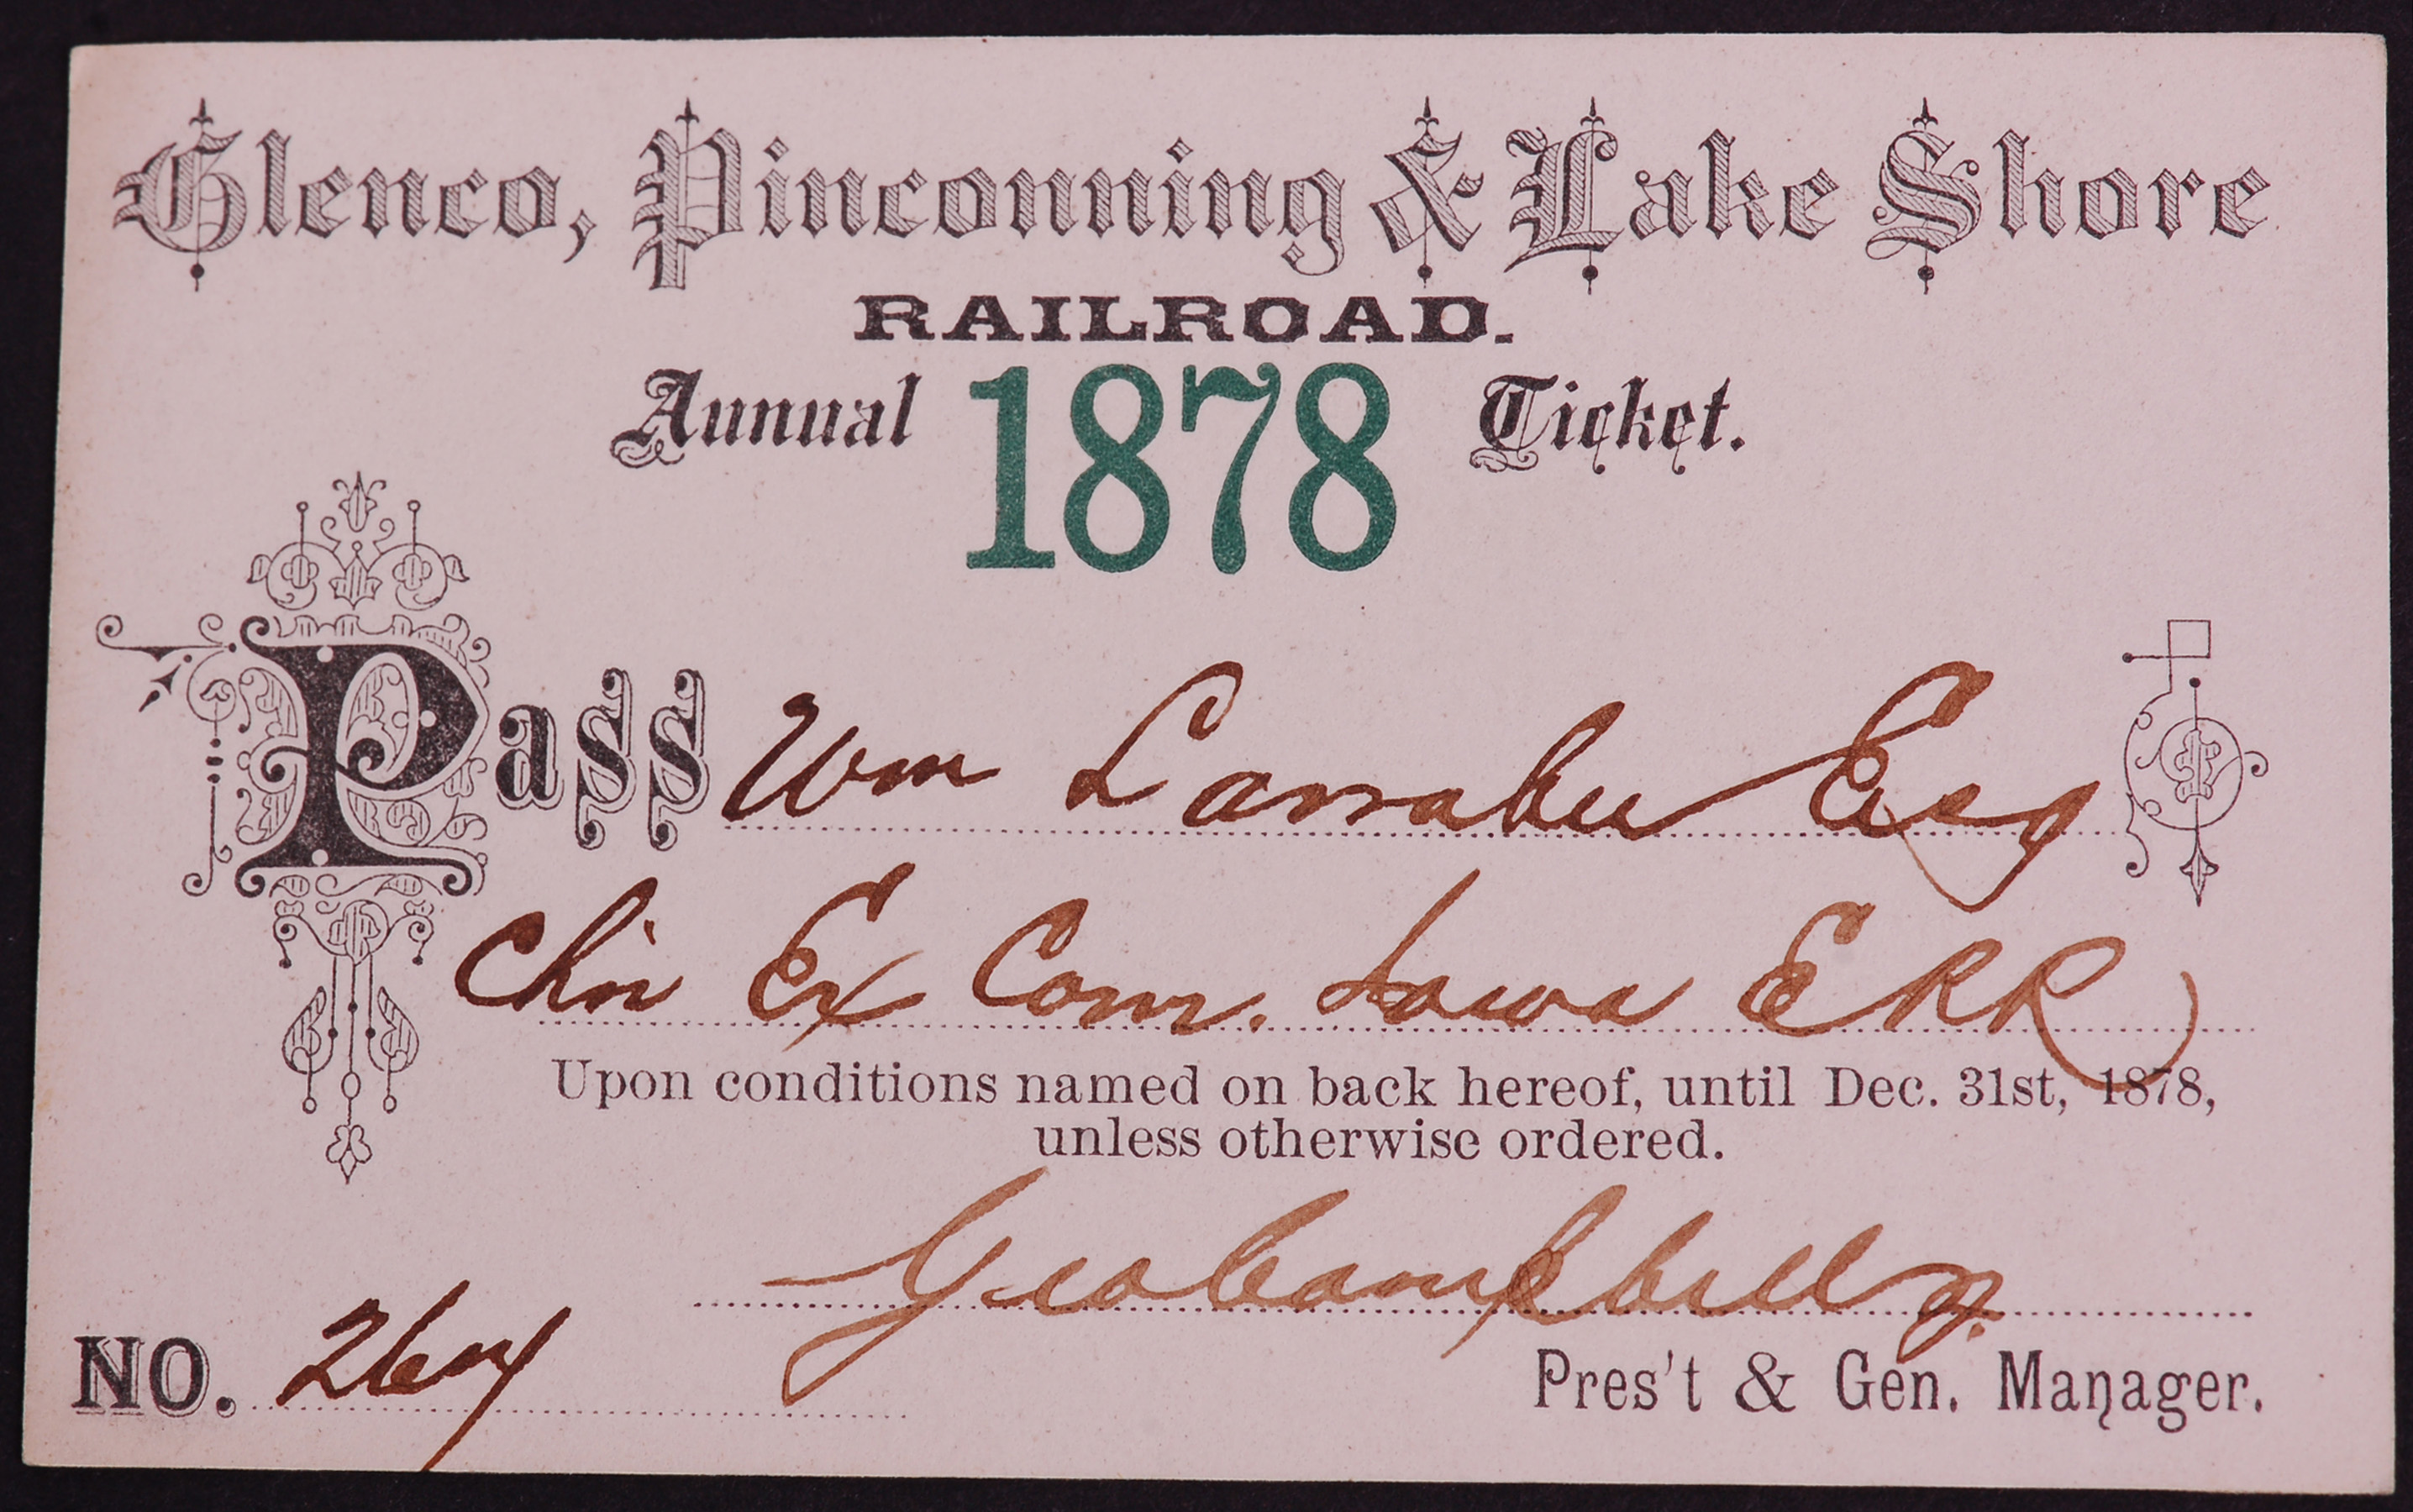 Glenco, Pinconning & Lake Shore
RAILROAD.
Annual 1878 Ticket.
Pass Wm Larrabee Esq
Chn Ex Com. Iowa E RR
Upon conditions named on back hereof, until Dec. 31st, 1878,
unless otherwise ordered.
Geo Campbell
NO. 267
Pres't & Gen. Manager.